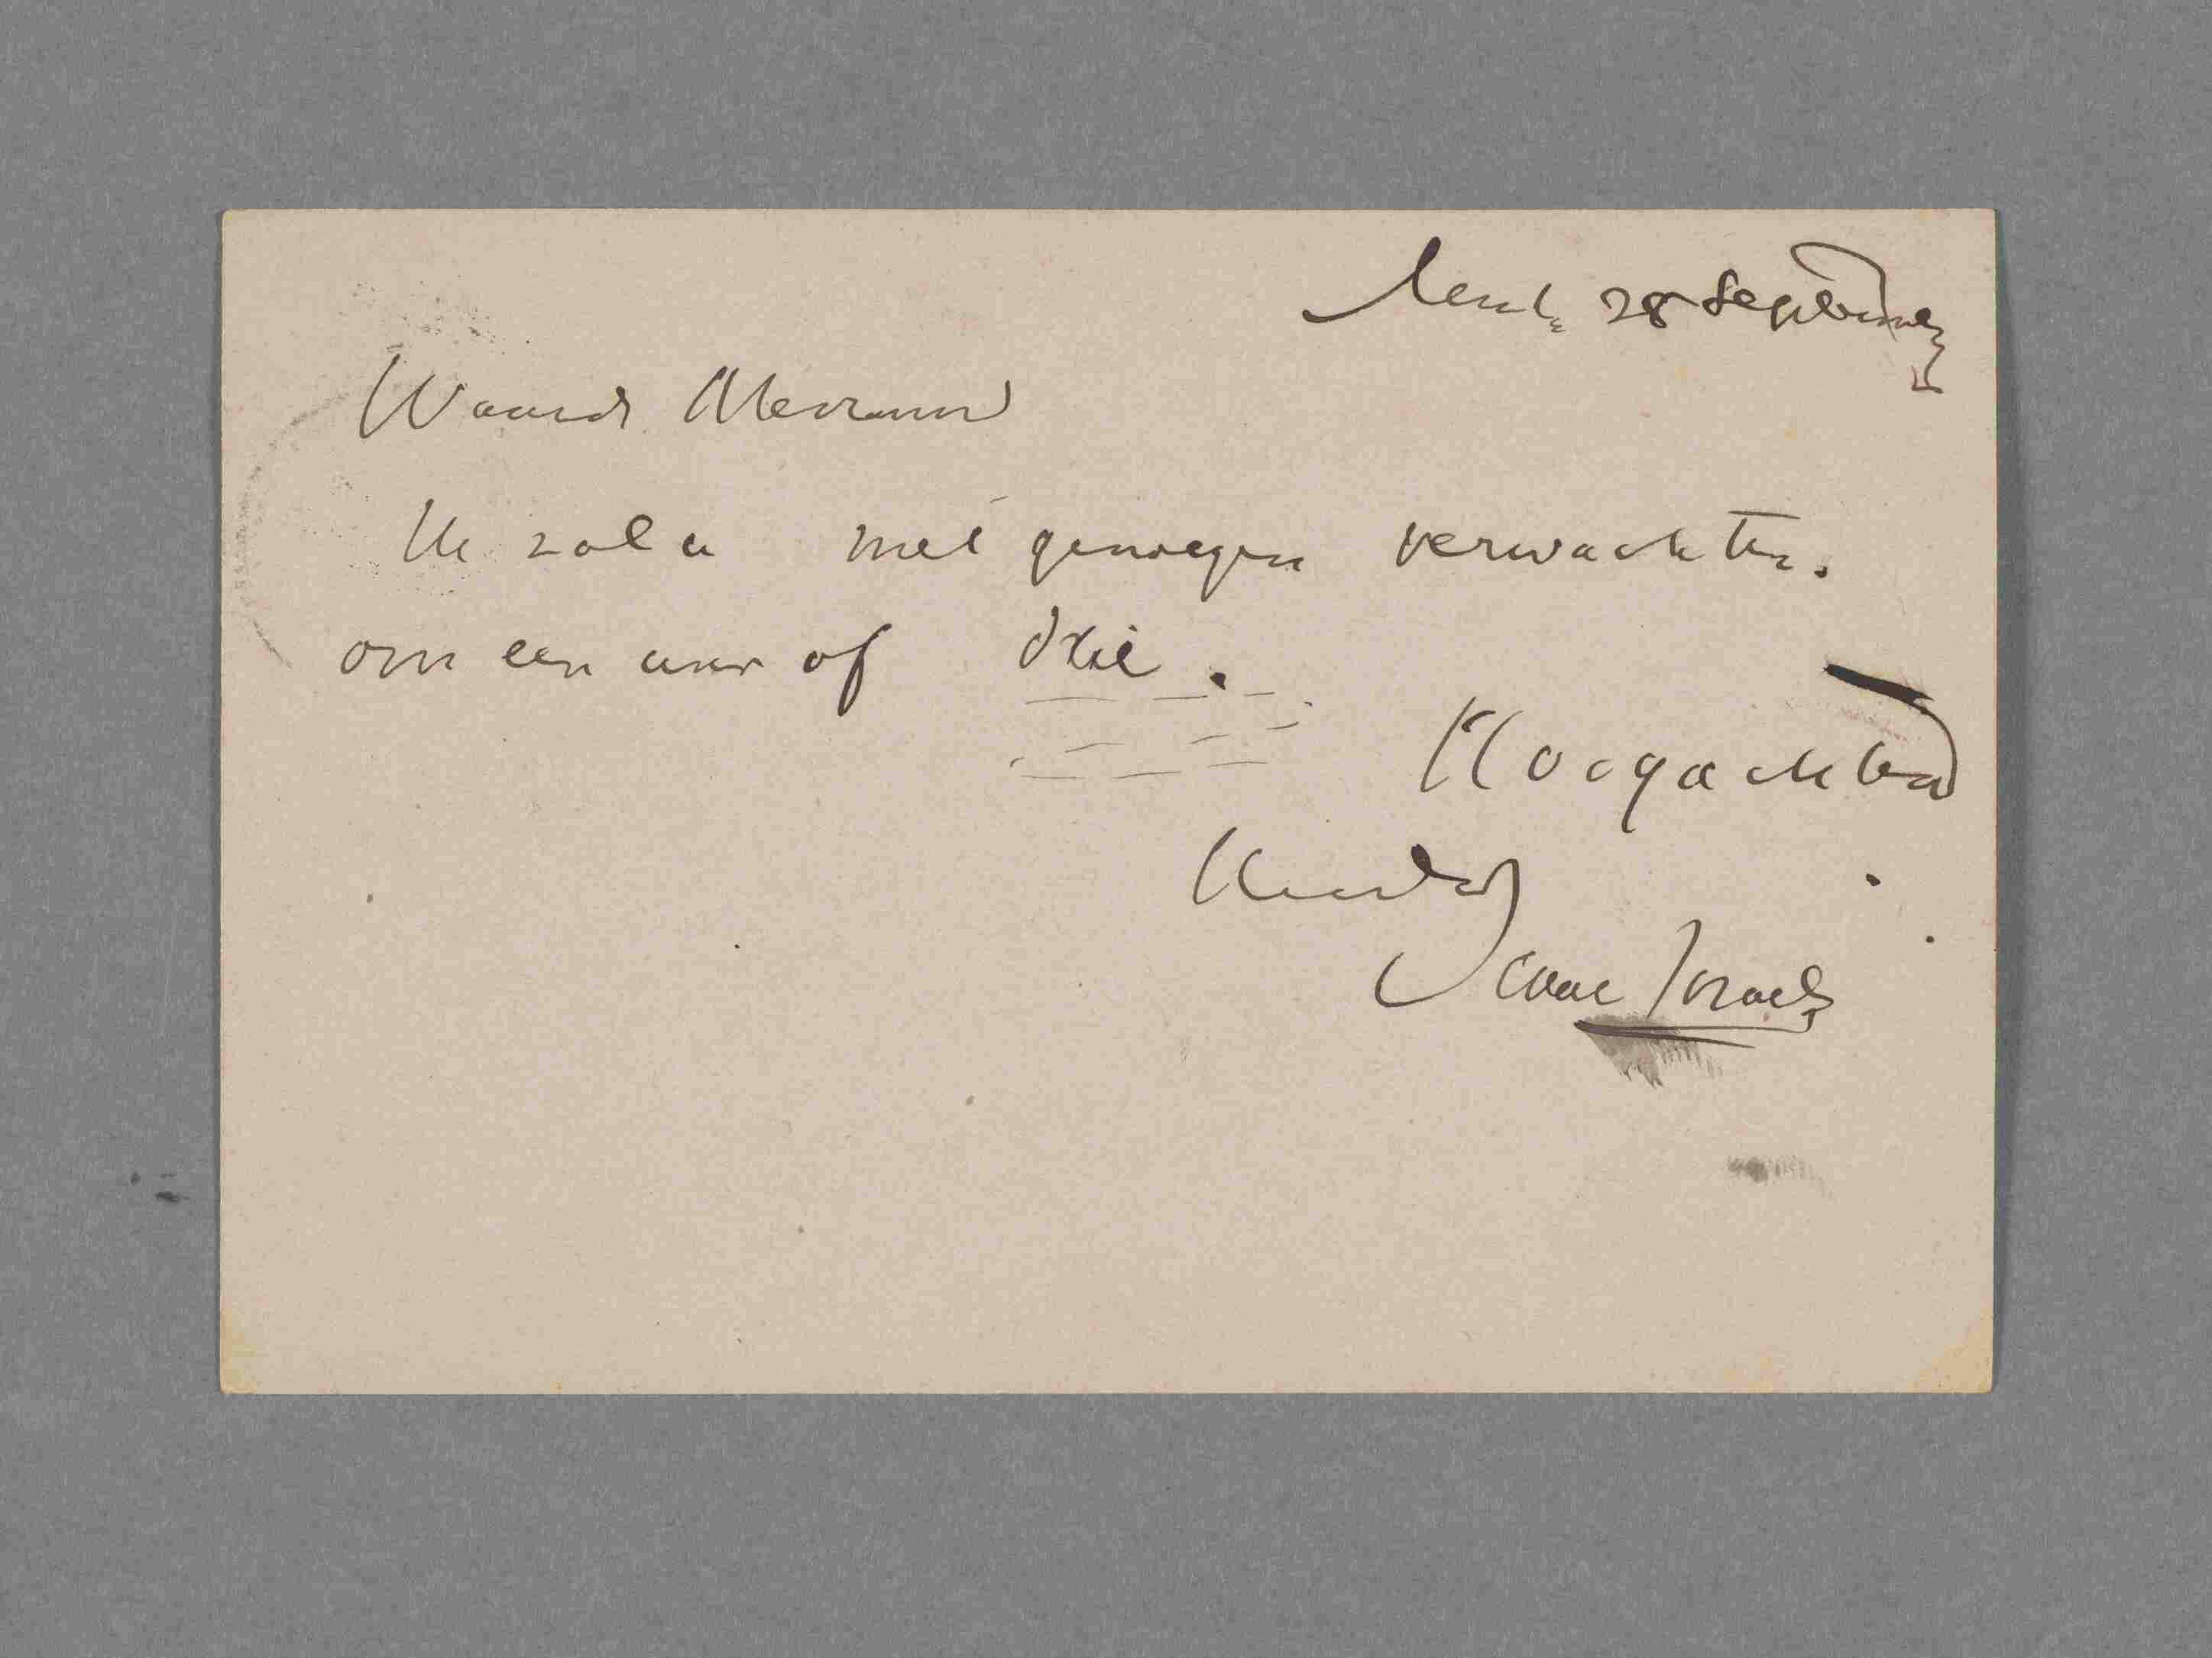 28 September
Waarde Mevrouw
Ik zal u met genoegen verwachten.
om een uur of drie.
Hoogachtend
Isaac Israels